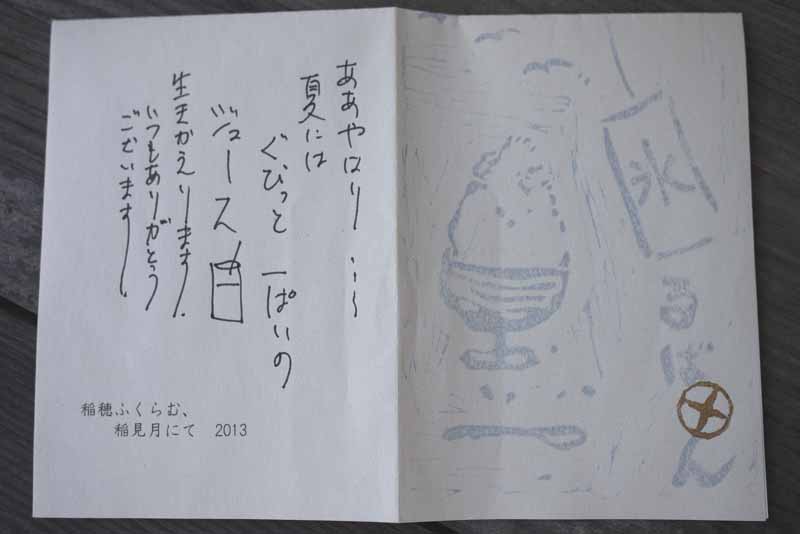 ああやはり…〜
夏には
ぐびっと一ぱいの
ジュース
生きかえります。
いつもありがとう
ございます。
稲穂ふくらむ、
稲見月にて 2013
氷
るばん